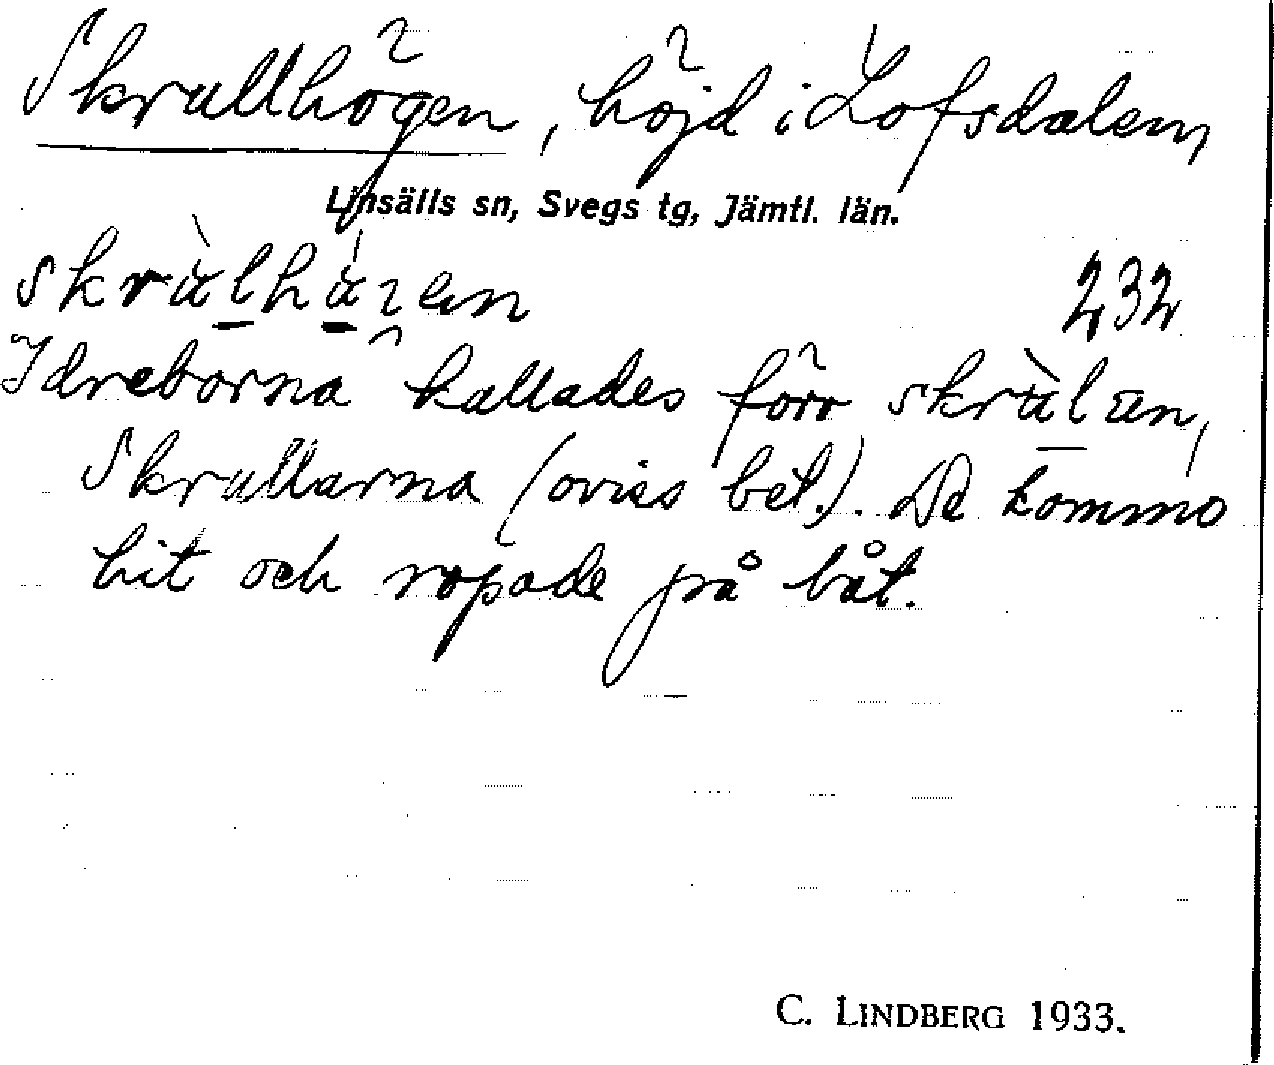 Skrullhögen, höjd i Lofsdalen,
Linsälls sn, Svegs tg, Jämtl. län.
232
Idreborna kallades förr
Skrullarna (oviss bet.). De kommo
hit och ropade på båt.
C. LINDBERG 1933.